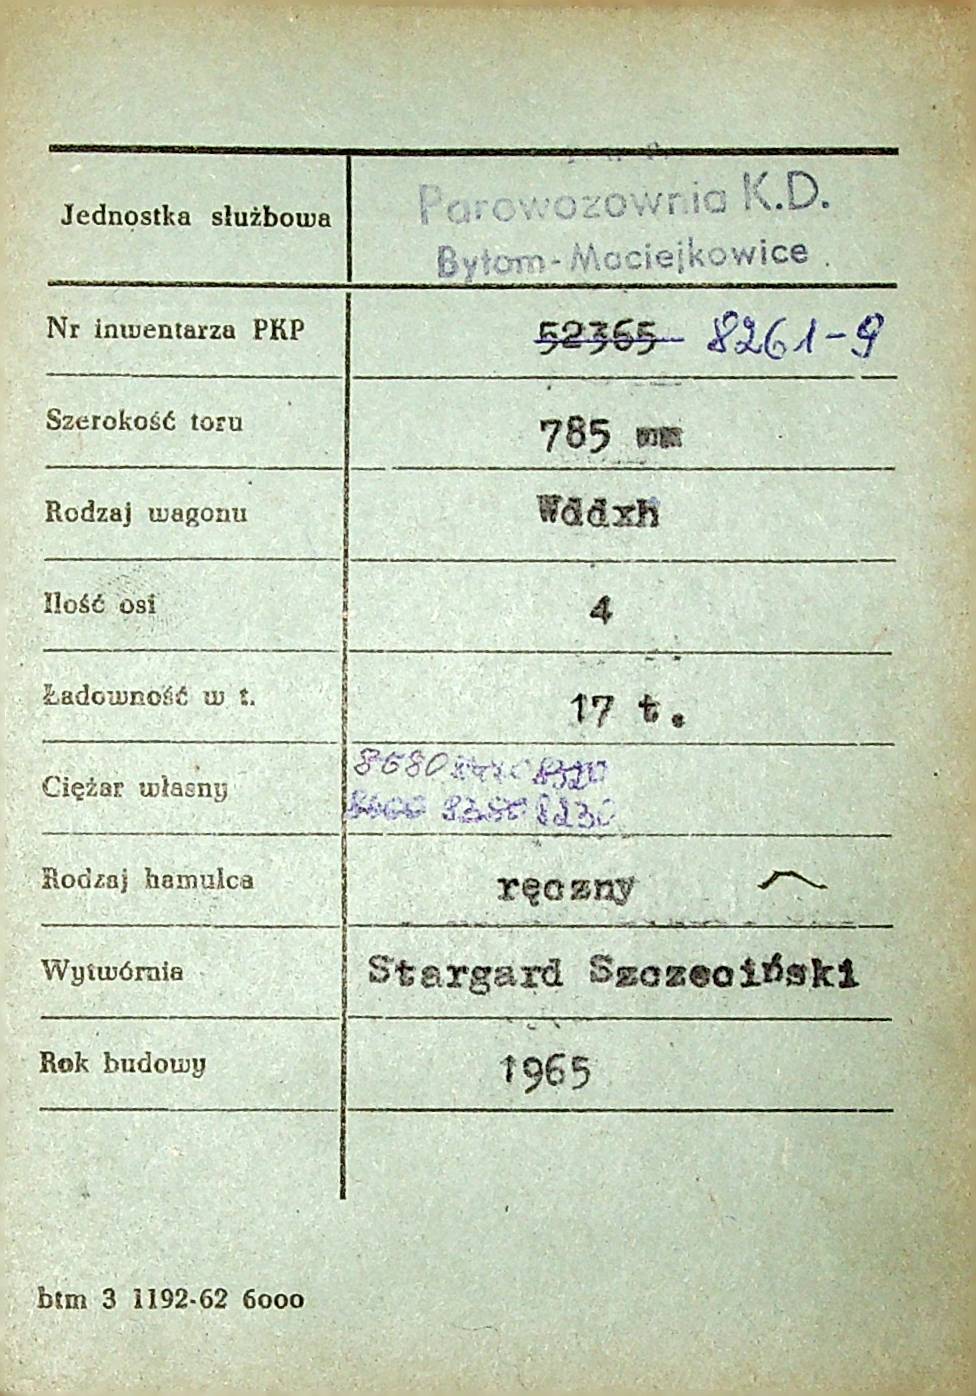 Jednostka służbowa
Parowozownia K.D.
Bytom-Maciejkowice
Nr inwentarza PKP 52365 8261-9
Szerokość toru 785 mm
Rodzaj wagonu Wddxh
Ilość osi 4
Ładowność w t. 17 t.
Ciężar własny
8680 8320
8230
Rodzaj hamulca ręczny
Wytwórnia Stargard Szczeciński
Rok budowy 1965
btm 3 1192-62 6000